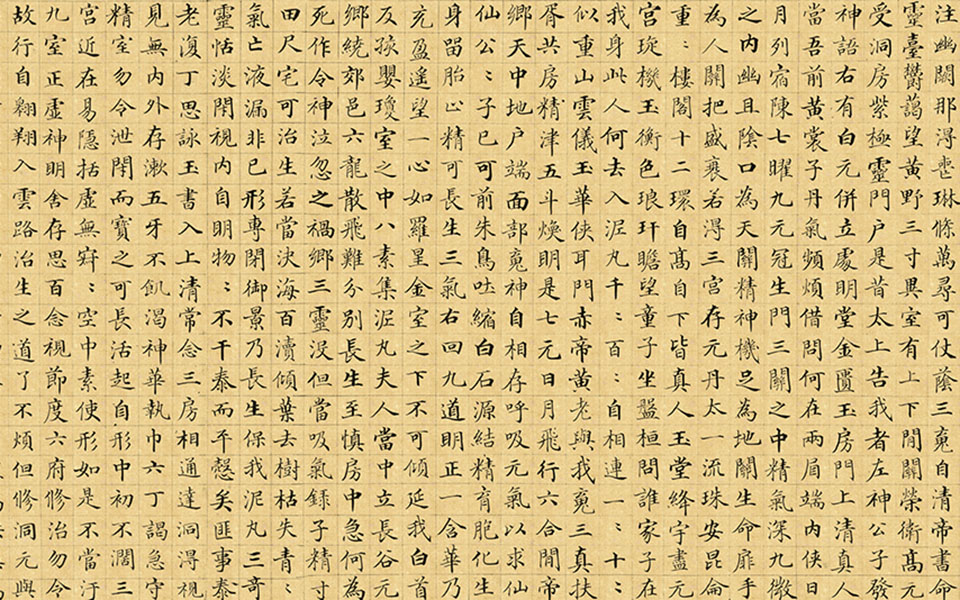 注幽關那得喪琳條萬尋可仗蔭三魂自清帝書命
靈臺鬱藹望黃野三寸異室有上下間關榮衛高元
受洞房紫極靈門戶是昔太上告我者左神公子發
神語右有白元併立處明堂金匱玉房門上清真人
當吾前黃裳子丹氣頻煩借問何在兩眉端內俠日
月列宿陳七曜九元冠生門三關之中精氣深九微
之內幽且陰口為天關精神機足為地關生命扉手
為人關把盛衰若得三宮存元丹太一流珠安昆侖
重：樓閣十二環自高自下皆真人玉堂絳宇盡元
宮琁機玉衡色琅玕瞻望童子坐盤桓問誰家子在
我身此人何去入泥丸千：百：自相連一：十：
似重山雲儀玉華俠耳門赤帝黃老與我魂三真扶
胥共房精津五斗煥明是七元日月飛行六合間帝
鄉天中地戶端面部魂神自相存呼吸元氣以求仙
仙公：子已可前朱鳥吐縮白石源結精育胞化生
身留胎止精可長生三氣右回九道明正一含華乃
充盈遙望一心如羅星金室之下不可傾延我白首
反孩嬰瓊室之中八素集泥丸夫人當中立長谷元
鄉繞郊邑六龍散飛難分別長生至慎房中急何為
死作令神泣忽之禍鄉三靈沒但當吸氣錄子精寸
田尺宅可治生若當決海百瀆傾葉去樹枯失青：
氣亡液漏非己形專閉御景乃長生保我泥丸三奇
靈恬淡閉視內自明物：不干泰而平愨矣匪事泰
老復丁思詠玉書入上清常念三房相通達洞得視
見無內外存漱五牙不飢渴神華執巾六丁謁急守
精室勿令泄閉而寶之可長活起自形中初不闊三
宮近在易隱括虛無寂：空中素使形如是不當汙
九室正虛神明舍存思百念視節度六府修治勿令
故行自翱翔入雲路治生之道了不煩但修洞元與